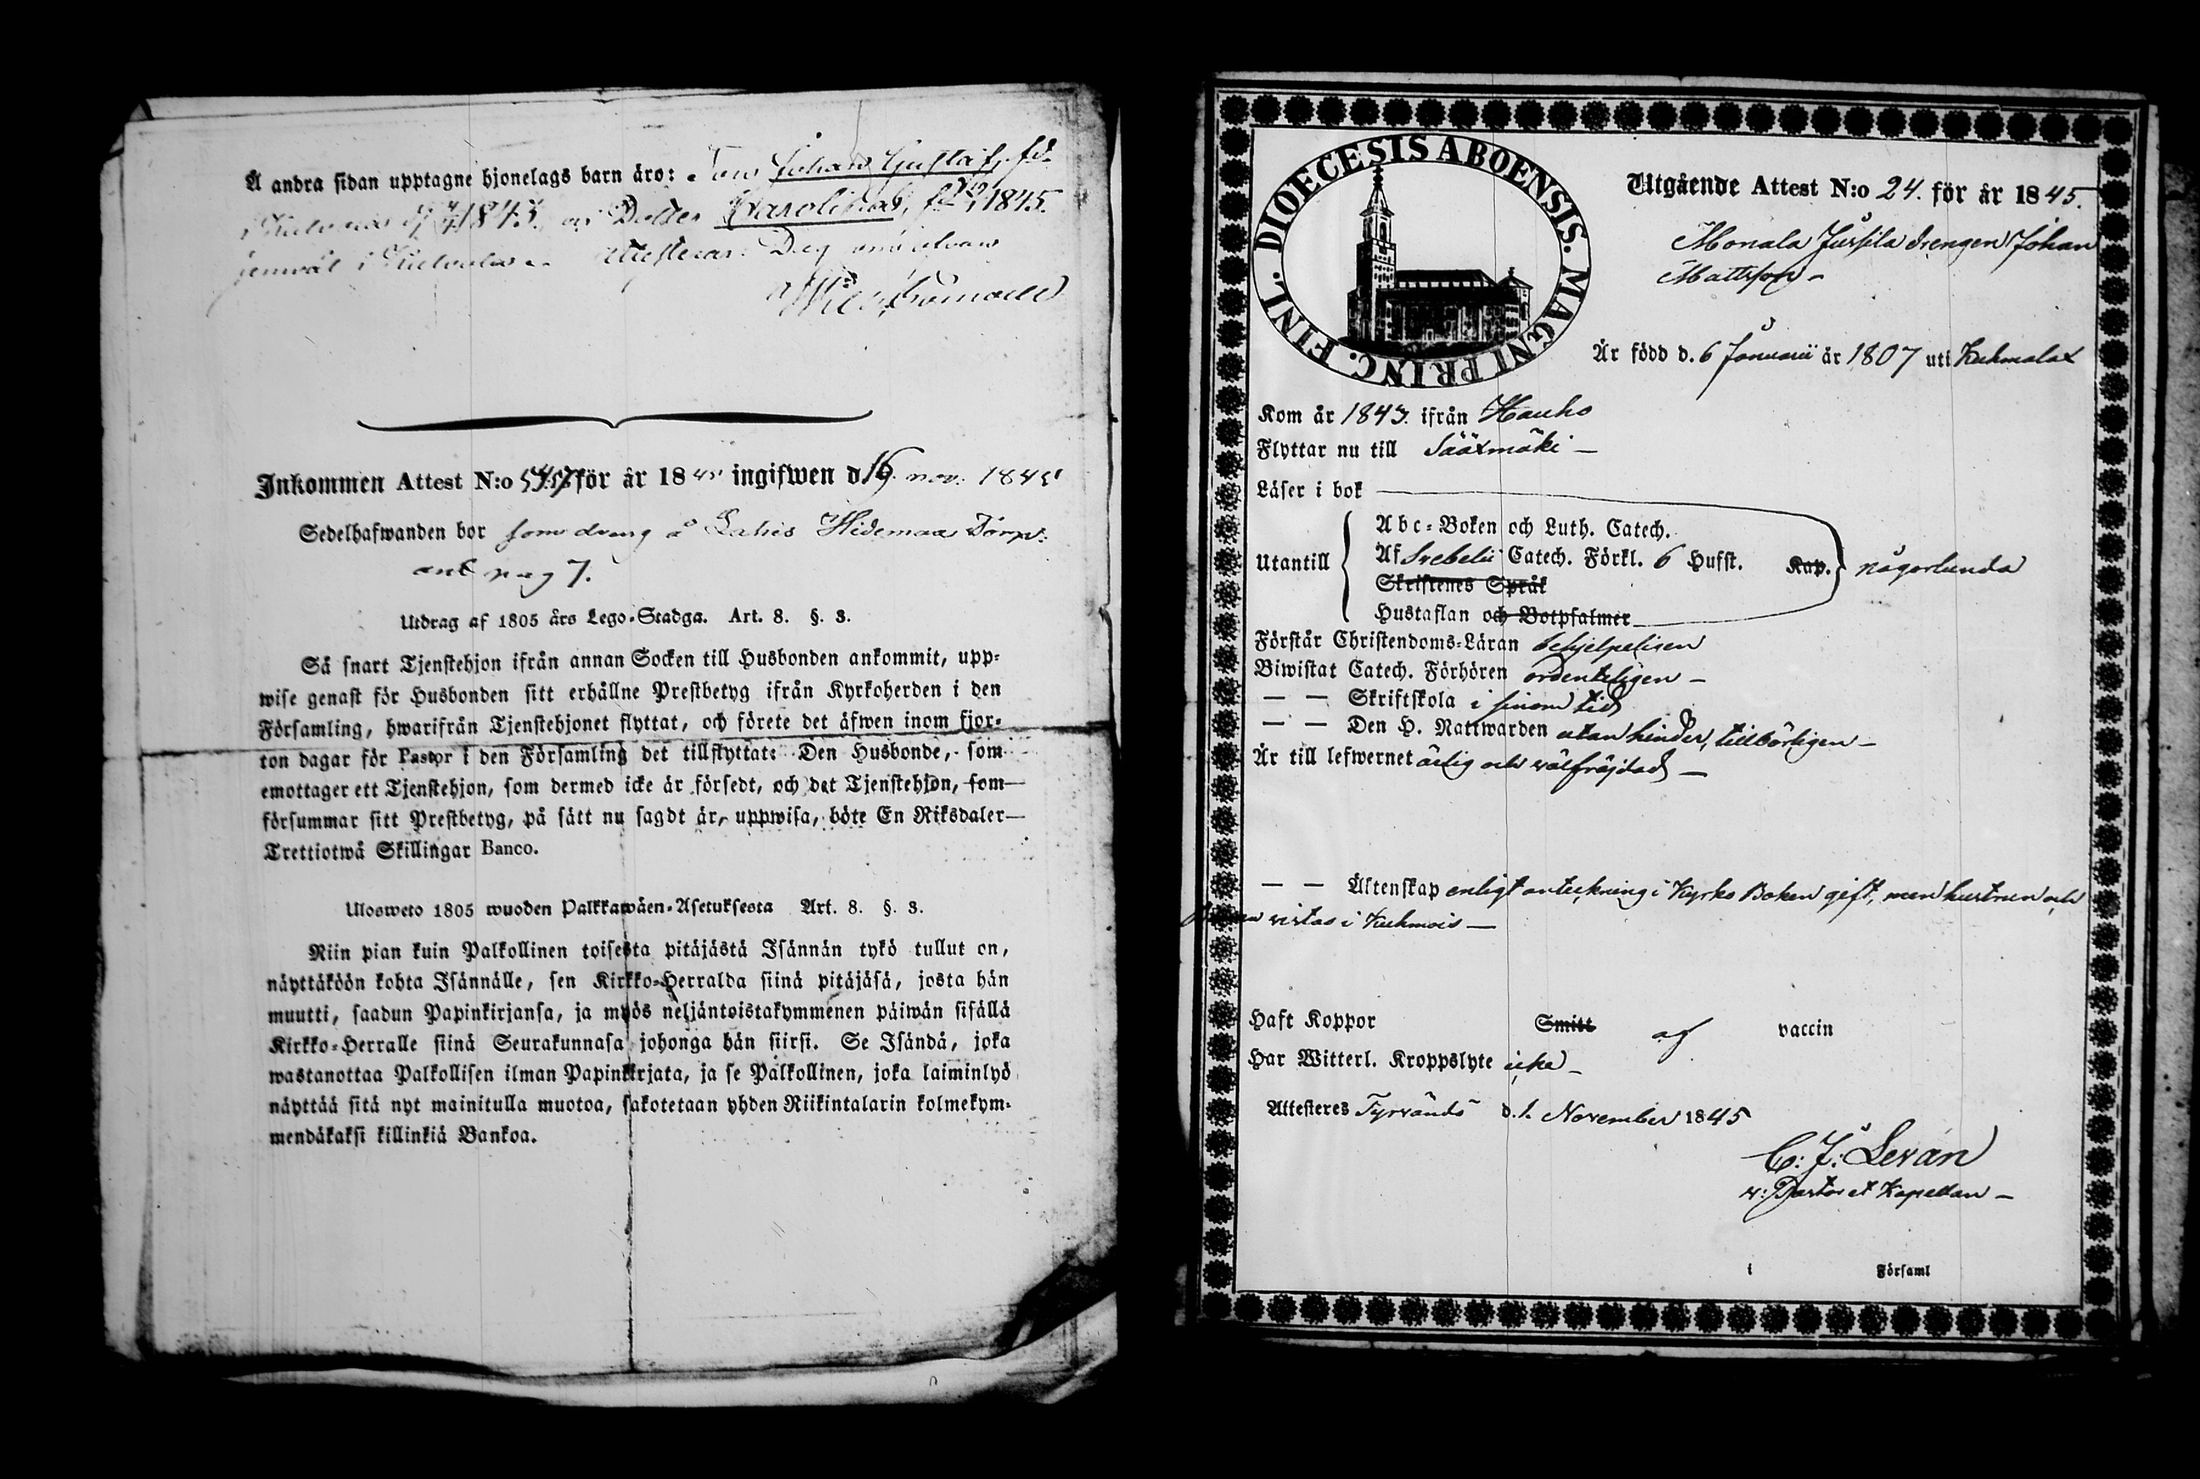 Å andra sidan upptagne hjonelags barn äro: Son Johan Gustaf, fd.
1843. Dotter Carolina, f. 1845.
jemväl i Attesteras
Inkommen Attest N:o för år 1845 ingifwen d. 16 nov. 1845
Sedelhafwanden bor som dräng å Lahis Hidemaa Torp.
pag 7.
Utdrag af 1805 års Lego-Stadga. Art. 8. §. 3.
Så snart Tjenstehjon ifrån annan Socken till Husbonden ankommit, upp-
wise genast för Husbonden sitt erhållne Prestbetyg ifrån Kyrkoherden i den
Församling, hwarifrån Tjenstehjonet flyttat, och förete det äfwen inom fjor-
ton dagar för Pastor i den Församling det tillflyttat: Den Husbonde, som
emottager ett Tjenstehjon, som dermed icke är försedt, och det Tjenstehjon, som
försummar sitt Prestbetyg, på sätt nu sagdt är, uppwisa, böte En Riksdaler
Trettiotwå Skillingar Banco.
Ulosweto 1805 wuoden Palkkawäen-Asetuksesta Art. 8. §. 3.
Niin pian kuin Palkollinen toisesta pitäjästä Isännän tykö tullut on,
näyttäköön kohta Isännälle, sen Kirkko-Herralda siinä pitäjäsä, josta hän
muutti, saadun Papinkirjansa, ja myös neljäntoistakymmenen päiwän sisällä
Kirkko-Herralle siinä Seurakunnasa johonga hän siirsi. Se Isändä, joka
wastanottaa Palkollisen ilman Papinkirjata, ja se Palkollinen, joka laiminlyö
näyttää sitä nyt mainitulla muotoa, sakotetaan yhden Riikintalarin kolmekym-
mendäkaksi killinkiä Bankoa.
DIOECESIS ABOENSIS. MAGNI PRINC. FINL.
Utgående Attest N:o 24. för år 1845.
Monala Jussila drengen Johan
Mattsson
Är född d. 6 Januarii år 1807 uti Kuhmalax
Kom år 1843. ifrån Hauho
Flyttar nu till Sääxmäki
Läser i bok
Utantill
Abc-Boken och Luth. Catech.
Af Svebelii Catech. Förkl. 6 Hufst. Kap. någorlunda
Skriftenes Språk
Hustaflan och Botpsalmer
Förstår Christendoms-Läran behjelpeligen
Biwistat Catech. Förhören ordenteligen
— — Skriftskola i sinom tid
— — Den H. Nattwarden utan hinder, tillbörligen
Är till lefwernet ärlig och välfräjdad
— — Äktenskap enligt anteckning i Kyrko Boken gift, men hustrun och
vistas i Kuhmois
Haft Koppor Smitt af vaccin
Har Witterl. Kroppslyte icke
Attesteres Tyrvändö d. 1. November 1845
C: J: Leván
v: Pastor et Kapellan
i Församl